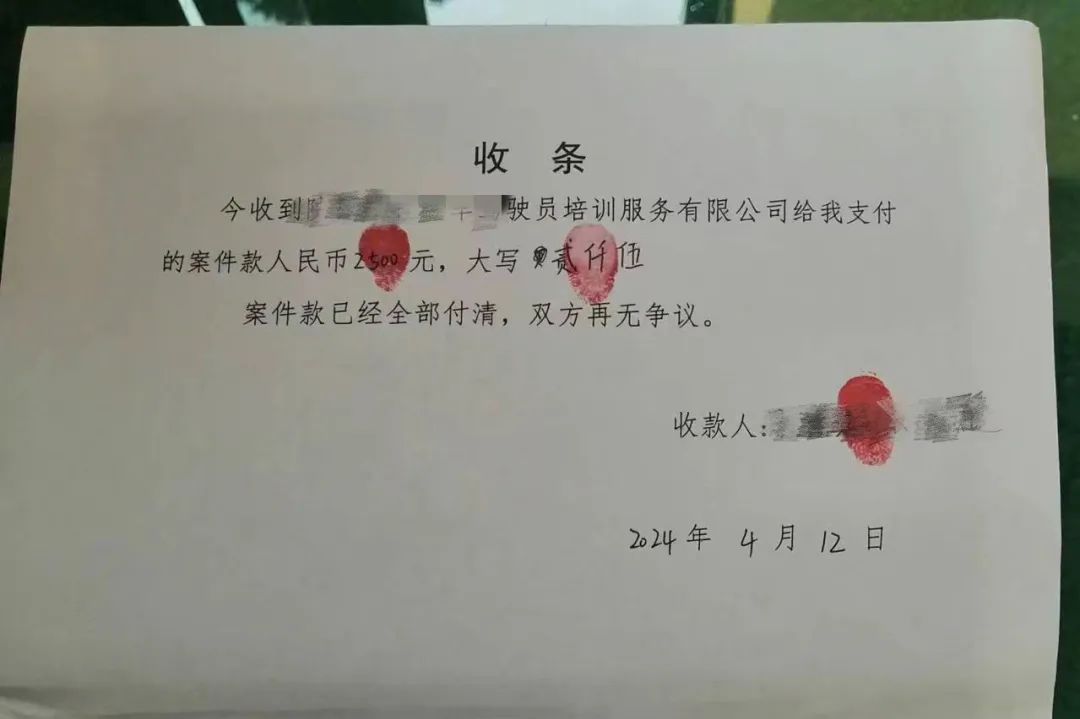 收 条
今收到驶员培训服务有限公司给我支付
的案件款人民币2500元，大写贰仟伍
案件款已经全部付清，双方再无争议。
收款人：
2024年 4月 12日